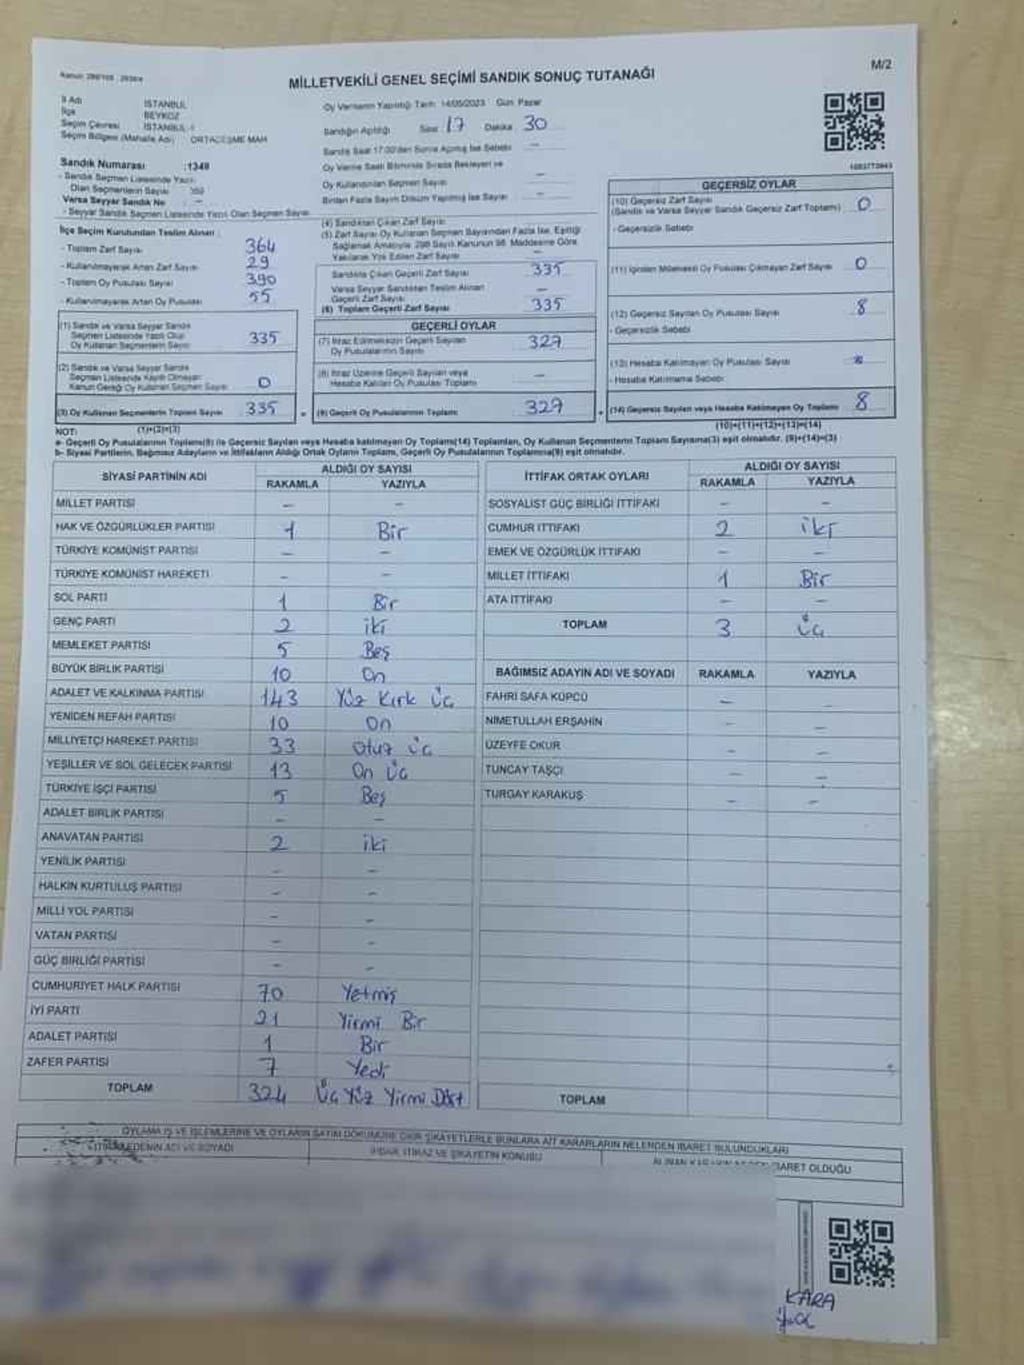 M/2
MİLLETVEKİLİ GENEL SEÇİMİ SANDIK SONUÇ TUTANAĞI
İl Adı İSTANBUL
İlçe BEYKOZ
Seçim Çevresi İSTANBUL-1
Seçim Bölgesi (Mahalle Adı) ORTAÇEŞME MAH
Oy Vermenin Yapıldığı Tarih 14/05/2023 Gün Pazar
Sandığın Açıldığı Saat 17 Dakika 30
Sandık Saat 17:00'den Sonra Açılmış İse Sebebi -
Oy Verme Saati Bitiminde Sırada Bekleyen ve
Oy Kullandırılan Seçmen Sayısı -
Birden Fazla Sayım Döküm Yapılmış İse Sayısı -
Sandık Numarası :1348
- Sandık Seçmen Listesinde Yazılı
Olan Seçmenlerin Sayısı
Varsa Seyyar Sandık No -
- Seyyar Sandık Seçmen Listesinde Yazılı Olan Seçmen Sayısı
İlçe Seçim Kurulundan Teslim Alınan
- Toplam Zarf Sayısı 364
- Kullanılmayarak Artan Zarf Sayısı 29
- Toplam Oy Pusulası Sayısı 390
- Kullanılmayarak Artan Oy Pusulası 55
(1) Sandık ve Varsa Seyyar Sandık
Seçmen Listesinde Yazılı Olup
Oy Kullanan Seçmenlerin Sayısı 335
(2) Sandık ve Varsa Seyyar Sandık
Seçmen Listesinde Kayıtlı Olmayan
Kanun Gereği Oy Kullanan Seçmen Sayısı 0
(3) Oy Kullanan Seçmenlerin Toplam Sayısı 335
(1)+(2)=(3)
(4) Sandıktan Çıkan Zarf Sayısı
(5) Zarf Sayısı Oy Kullanan Seçmen Sayısından Fazla İse, Eşitliği
Sağlamak Amacıyla, 298 Sayılı Kanunun 98. Maddesine Göre
Yakılarak Yok Edilen Zarf Sayısı -
Sandıkta Çıkan Geçerli Zarf Sayısı 335
Varsa Seyyar Sandıktan Teslim Alınan
Geçerli Zarf Sayısı -
(6) Toplam Geçerli Zarf Sayısı 335
GEÇERLİ OYLAR
(7) İtiraz Edilmeksizin Geçerli Sayılan
Oy Pusulalarının Sayısı 327
(8) İtiraz Üzerine Geçerli Sayılan veya
Hesaba Katılan Oy Pusulası Toplamı -
(9) Geçerli Oy Pusulalarının Toplamı 327
GEÇERSİZ OYLAR
(10) Geçersiz Zarf Sayısı
(Sandık ve Varsa Seyyar Sandık Geçersiz Zarf Toplamı) 0
- Geçersizlik Sebebi
(11) İçinden Milletvekili Oy Pusulası Çıkmayan Zarf Sayısı 0
(12) Geçersiz Sayılan Oy Pusulası Sayısı 8
- Geçersizlik Sebebi
(13) Hesaba Katılmayan Oy Pusulası Sayısı
- Hesaba Katılmama Sebebi
(14) Geçersiz Sayılan veya Hesaba Katılmayan Oy Toplamı 8
(10)+(11)+(12)+(13)=(14)
NOT:
a- Geçerli Oy Pusulalarının Toplamı(9) ile Geçersiz Sayılan veya Hesaba katılmayan Oy Toplamı(14) Toplamları, Oy Kullanan Seçmenlerin Toplam Sayısına(3) eşit olmalıdır. (9)+(14)=(3)
b- Siyasi Partilerin, Bağımsız Adayların ve İttifakların Aldığı Ortak Oyların Toplamı, Geçerli Oy Pusulalarının Toplamına(9) eşit olmalıdır.
SİYASİ PARTİNİN ADI ALDIĞI OY SAYISI
RAKAMLA YAZIYLA
MİLLET PARTİSİ - -
HAK VE ÖZGÜRLÜKLER PARTİSİ 1 Bir
TÜRKİYE KOMÜNİST PARTİSİ - -
TÜRKİYE KOMÜNİST HAREKETİ - -
SOL PARTİ 1 Bir
GENÇ PARTİ 2 iki
MEMLEKET PARTİSİ 5 Beş
BÜYÜK BİRLİK PARTİSİ 10 On
ADALET VE KALKINMA PARTİSİ 143 Yüz Kırk Üç
YENİDEN REFAH PARTİSİ 10 On
MİLLİYETÇİ HAREKET PARTİSİ 33 Otuz Üç
YEŞİLLER VE SOL GELECEK PARTİSİ 13 On Üç
TÜRKİYE İŞÇİ PARTİSİ 5 Beş
ADALET BİRLİK PARTİSİ - -
ANAVATAN PARTİSİ 2 iki
YENİLİK PARTİSİ - -
HALKIN KURTULUŞ PARTİSİ - -
MİLLİ YOL PARTİSİ - -
VATAN PARTİSİ - -
GÜÇ BİRLİĞİ PARTİSİ - -
CUMHURİYET HALK PARTİSİ 70 Yetmiş
İYİ PARTİ 21 Yirmi Bir
ADALET PARTİSİ 1 Bir
ZAFER PARTİSİ 7 Yedi
TOPLAM 324 Üç Yüz Yirmi Dört
İTTİFAK ORTAK OYLARI ALDIĞI OY SAYISI
RAKAMLA YAZIYLA
SOSYALİST GÜÇ BİRLİĞİ İTTİFAKI - -
CUMHUR İTTİFAKI 2 iki
EMEK VE ÖZGÜRLÜK İTTİFAKI - -
MİLLET İTTİFAKI 1 Bir
ATA İTTİFAKI - -
TOPLAM 3 Üç
BAĞIMSIZ ADAYIN ADI VE SOYADI RAKAMLA YAZIYLA
FAHRİ SAFA KÜPCÜ - -
NİMETULLAH ERŞAHİN - -
ÜZEYFE OKUR - -
TUNCAY TAŞÇI - -
TURGAY KARAKUŞ - -
TOPLAM
OYLAMA İŞ VE İŞLEMLERİNE VE OYLARIN SAYIM DÖKÜMÜNE DAİR ŞİKAYETLERLE BUNLARA AİT KARARLARIN NELERDEN İBARET BULUNDUKLARI
İTİRAZ EDENİN ADI VE SOYADI
İHBAR, İTİRAZ VE ŞİKAYETİN KONUSU
İBARET OLDUĞU
KARA